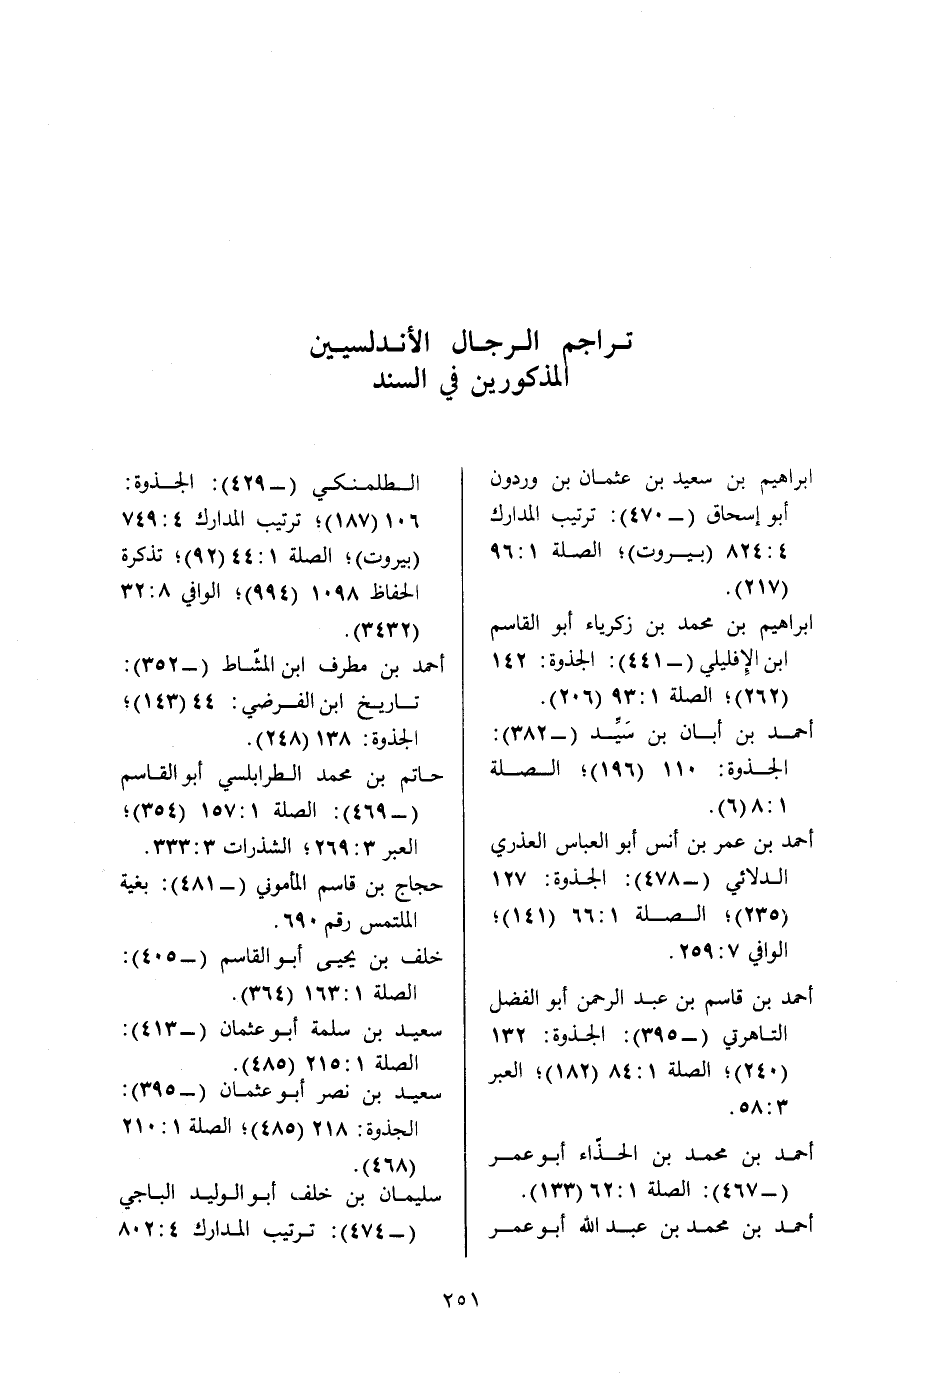 تراجم الرجال الأندلسيين
المذكورين في السند
ابراهيم بن سعيد بن عثمان بن وردون
أبو إسحاق (ـ ٤٧٠): ترتيب المدارك
٤: ٨٢٤ (بيروت)؛ الصلة ١: ٩٦
(٢١٧).
ابراهيم بن محمد بن زكرياء أبو القاسم
ابن الإفليلي (ـ ٤٤١): الجذوة: ١٤٢
(٢٦٢)؛ الصلة ١: ٩٣ (٢٠٦).
أحمد بن أبان بن سَيِّد (ـ ٣٨٢):
الجذوة: ١١٠ (١٩٦)؛ الصلة
١: ٨ (٦).
أحمد بن عمر بن أنس أبو العباس العذري
الدلائي (ـ ٤٧٨): الجذوة: ١٢٧
(٢٣٥)؛ الصلة ١: ٦٦ (١٤١)؛
الوافي ٧: ٢٥٩.
أحمد بن قاسم بن عبد الرحمن أبو الفضل
التاهرتي (ـ ٣٩٥): الجذوة: ١٣٢
(٢٤٠)؛ الصلة ١: ٨٤ (١٨٢)؛ العبر
٣: ٥٨.
أحمد بن محمد بن الحذّاء أبو عمر
(ـ ٤٦٧): الصلة ١: ٦٢ (١٣٣).
أحمد بن محمد بن عبد الله أبو عمر
الطلمنكي (ـ ٤٢٩): الجذوة:
١٠٦ (١٨٧)؛ ترتيب المدارك ٤: ٧٤٩
(بيروت)؛ الصلة ١: ٤٤ (٩٢)؛ تذكرة
الحفاظ ١٠٩٨ (٩٩٤)؛ الوافي ٨: ٣٢
(٣٤٣٢).
أحمد بن مطرف ابن المشّاط (ـ ٣٥٢):
تاريخ ابن الفرضي: ٤٤ (١٤٣)؛
الجذوة: ١٣٨ (٢٤٨).
حاتم بن محمد الطرابلسي أبو القاسم
(ـ ٤٦٩): الصلة ١: ١٥٧ (٣٥٤)؛
العبر ٣: ٢٦٩؛ الشذرات ٣: ٣٣٣.
حجاج بن قاسم المأموني (ـ ٤٨١): بغية
الملتمس رقم ٦٩٠.
خلف بن يحيى أبو القاسم (ـ ٤٠٥):
الصلة ١: ١٦٣ (٣٦٤).
سعيد بن سلمة أبو عثمان (ـ ٤١٣):
الصلة ١: ٢١٥ (٤٨٥).
سعيد بن نصر أبو عثمان (ـ ٣٩٥):
الجذوة: ٢١٨ (٤٨٥)؛ الصلة ١: ٢١٠
(٤٦٨).
سليمان بن خلف أبو الوليد الباجي
(ـ ٤٧٤): ترتيب المدارك ٤: ٨٠٢
٢٥١